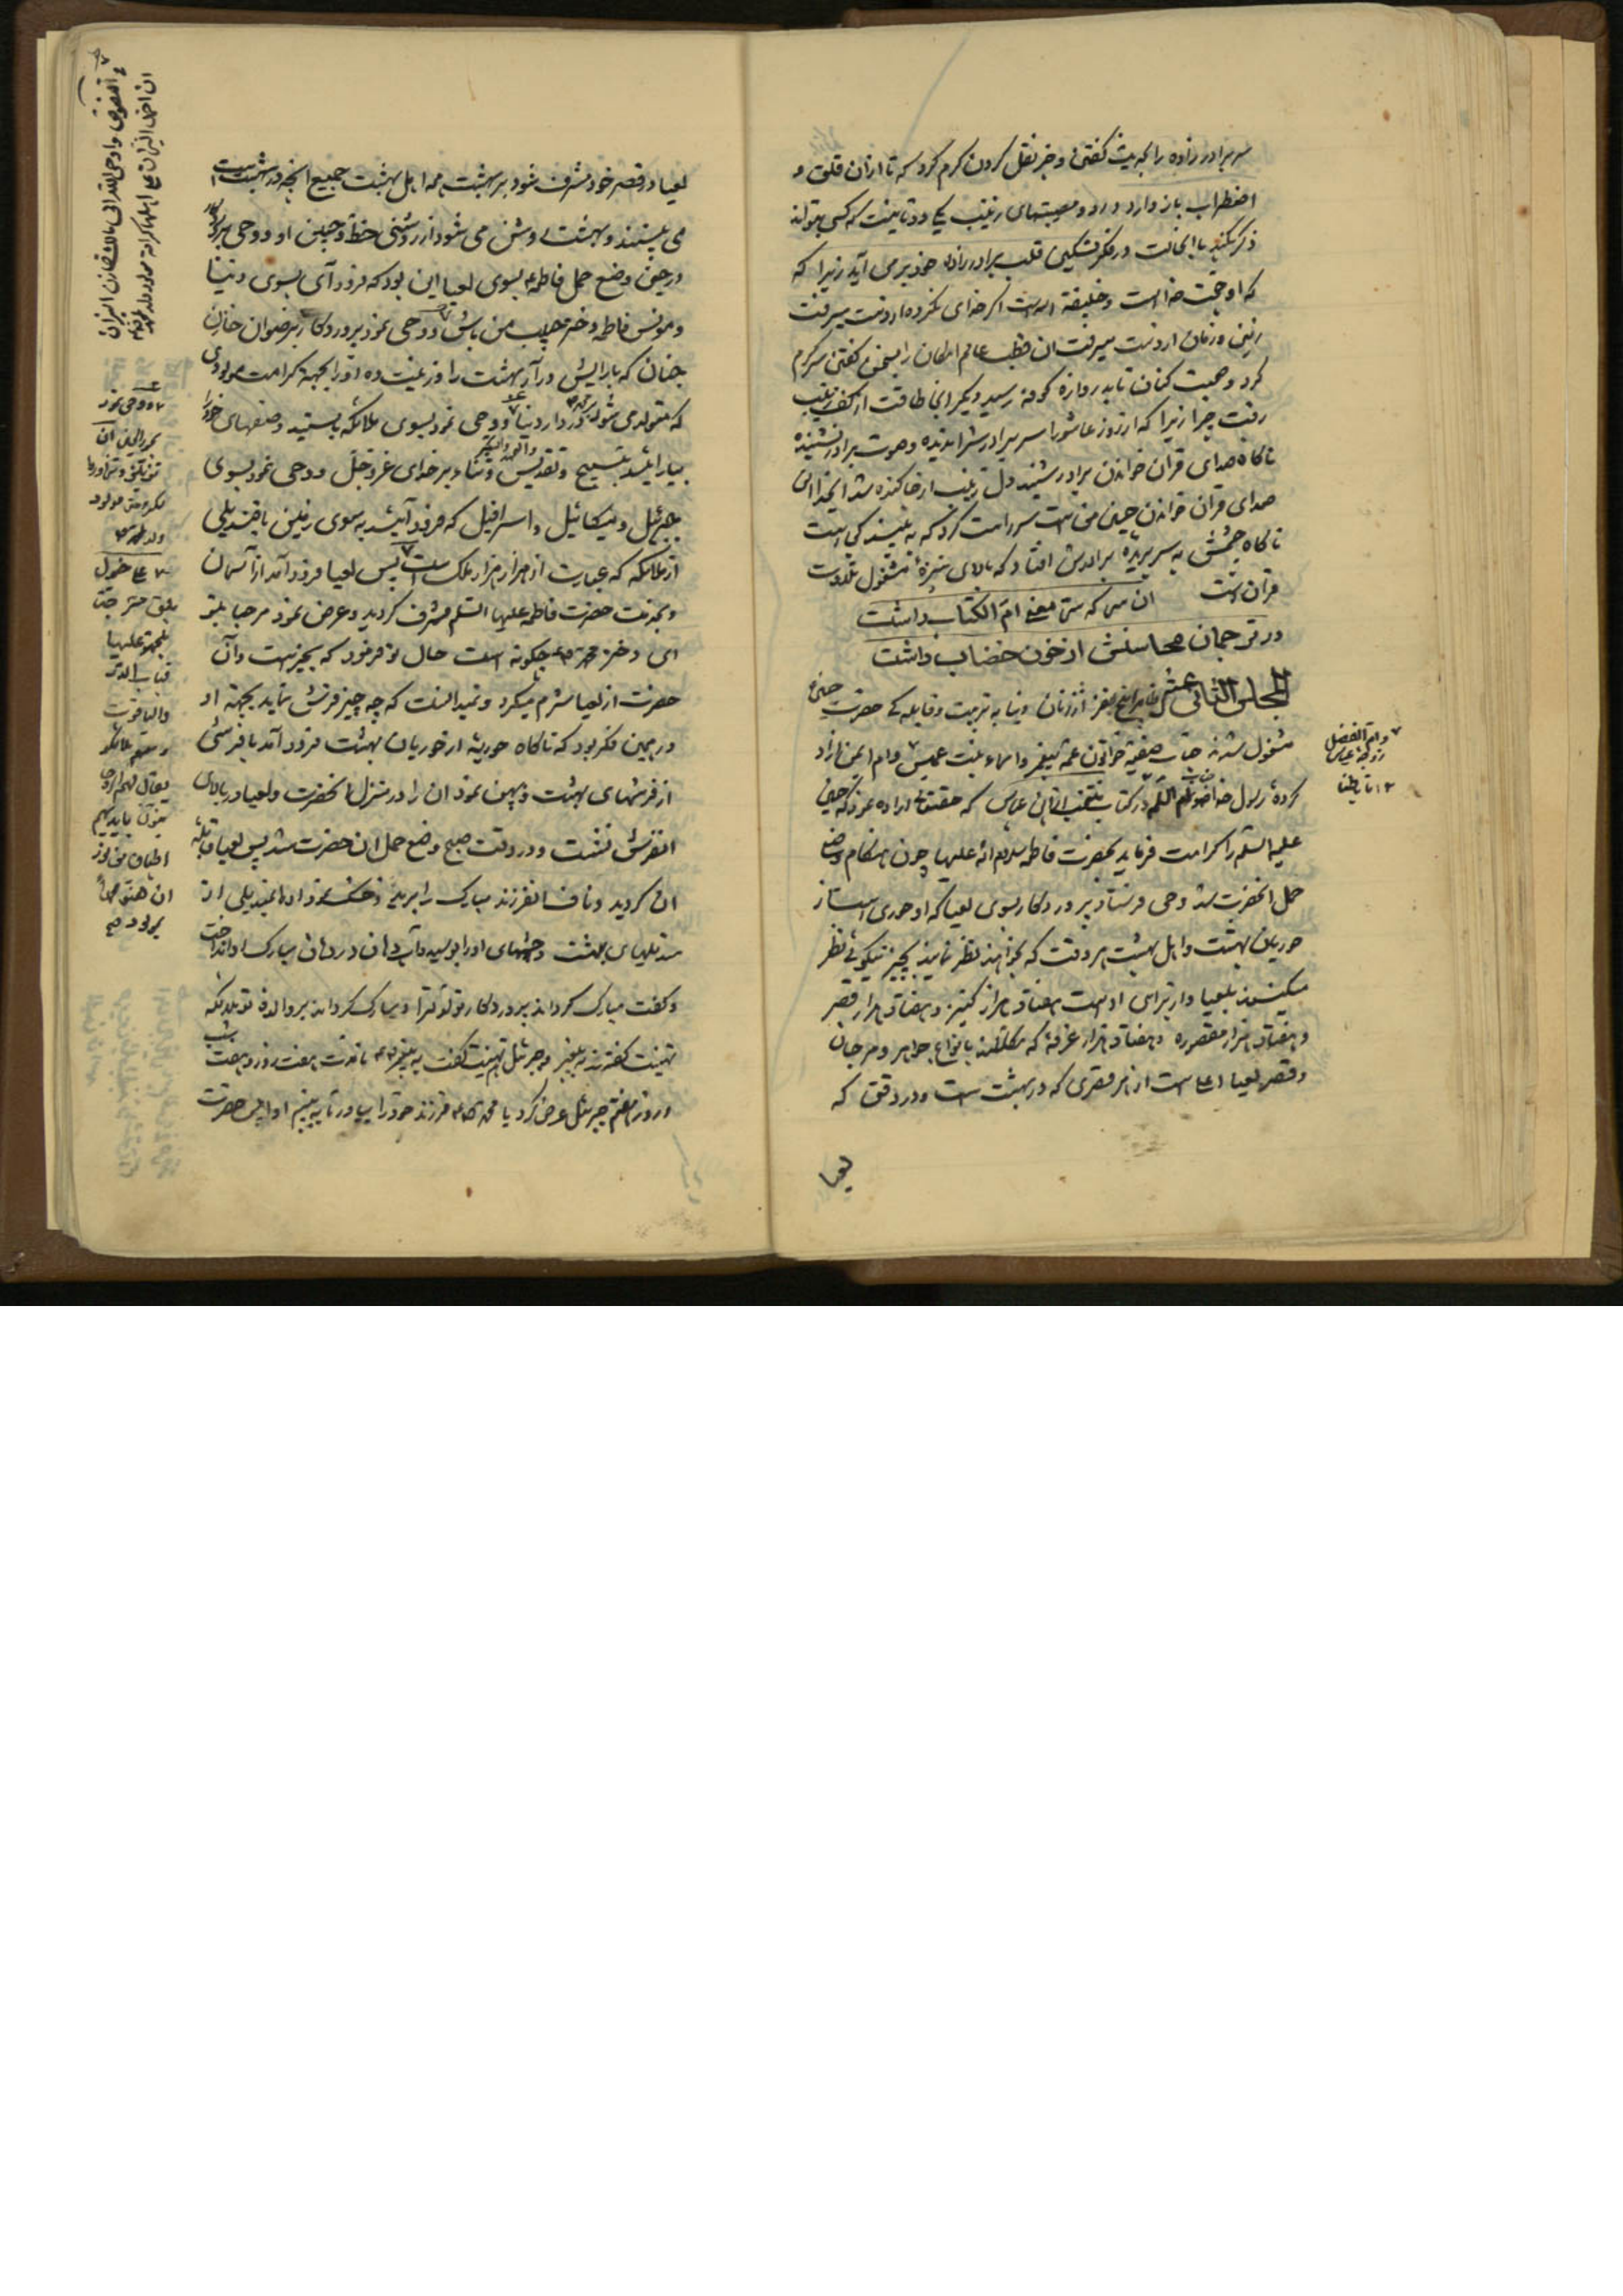 سر برادر زاده را بجهت گفتن و خبر نقل کردن گرم کرد که تا از آن قلق و
اضطراب باز دارد و رد و مصیبتهای زینب یکی دو تا نیست که کسی بتواند
ذکر بکند با اینحالت در فکر تسکین قلب برادر زاده خود بر می آید زیرا که
که او حجت خداست و خلیفة الله است اگر خدای نکرده از دست میرفت
زمین و زمان از دست میرفت آن قطب عالم امکان را بسخن گفتن سرگرم
کرد و صحبت کنان تا بدروازه کوفه رسید دیگر اینجا طاقت از کف زینب
رفت چرا زیرا که از روز عاشورا سر برادرش را ندیده و صوت برادر نشنیده
ناگاه صدای قران خواندن برادر شنید دل زینب از جا کنده شد ای خدا این
صدای قران خواندن حسین من است سر راست کرد که به بیند کی است
ناگاه چشمش به سر بریده برادرش افتاد که بالای نیزه مشغول تلاوت
قران است ان سی که معنی ام الکتاب داشت
در ترجمان محاسنش از خون خضاب داشت
المجلس الثانی عشر پنج نفر از زنان دنیا به تربیت و قابله کی حضرت حسین
مشغول شدند جناب صفیه خواتون عمه پیغمبر و اسماء بنت عمیس و ام ایمن آزاد
کرده رسول خدا در کتاب منتخب از ابن عباس که حقتعالی اراده نمود که حسین
علیه السلام را کرامت فرماید بحضرت فاطمه سلام الله علیها چون هنگام وضع
حمل انحضرت شد وحی فرستاد پروردگار بسوی لعیا که او حوری است از
حوریان بهشت و اهل بهشت هر وقت که بخواهند نظر نمایند بچیز نیکوئی نظر
میکنند بلعیا و از برای او است هفتاد هزار کنیز و هفتاد هزار قصر
و هفتاد هزار مقصوره و هفتاد هزار غرفه که مکللند بانواع جواهر و مرجان
و قصر لعیا اعلی است از هر قصری که در بهشت است و در وقتی که
لعیا
و ام الفضل
زوجه عباس
لعیا در قصر خود مشرف شود بر بهشت همه اهل بهشت جمیع انچه در بهشت است
می بینند و بهشت روشن می شود از روشنی خد و جبین او و وحی پروردگار
در حین وضع حمل فاطمه بسوی لعیا این بود که فرود آی بسوی دنیا
و مونس فاطمه دختر حبیب من باش و وحی نمود پروردگار بر رضوان خازن
جنان که بارایش در آر بهشت را و زینت ده او را بجهة کرامت مولودی
که متولد می شود در دار دنیا و وحی نمود بسوی ملائکه بایستید و صفهای خود را
بیارائید به تسبیح و تقدیس و ثناء بر خدای عز و جل و وحی نمود بسوی
جبرئیل و میکائیل و اسرافیل که فرود آئید به سوی زمین با قندیلی
از ملائکه که عبارت از هزار هزار ملک است پس لعیا فرود آمد از آسمان
و بخدمت حضرت فاطمه علیها السلام مشرف گردید و عرض نمود مرحبا بتو
ای دختر محمد چگونه است حال تو فرمود که بخیر است و آن
حضرت از لعیا شرم میکرد و نمیدانست که چه چیز فرش نماید بجهة او
در همین فکر بود که ناگاه حوریه از حوریان بهشت فرود آمد با فرشی
از فرشهای بهشت و پهن نمود ان را در منزل انحضرت و لعیا در بالای
انفرش نشست و در وقت صبح وضع حمل ان حضرت شد پس لعیا قابله
ان گردید و ناف انفرزند مبارک را برید و خشک نمود او را بمندیلی از
مندیلهای بهشت و چشمهای او را بوسید و آب دهان در دهان مبارک او انداخت
و گفت مبارک گرداند پروردگار تولد ترا و مبارک گرداند بر والده تو ملائکه
تهنیت گفتند به پیغمبر و جبرئیل تهنیت گفت به پیغمبر تا مدت هفت روز و هفت شب
و روز هفتم جبرئیل عرض کرد یا محمد فرزند خود را بیاور تا به بینم او را پس حضرت